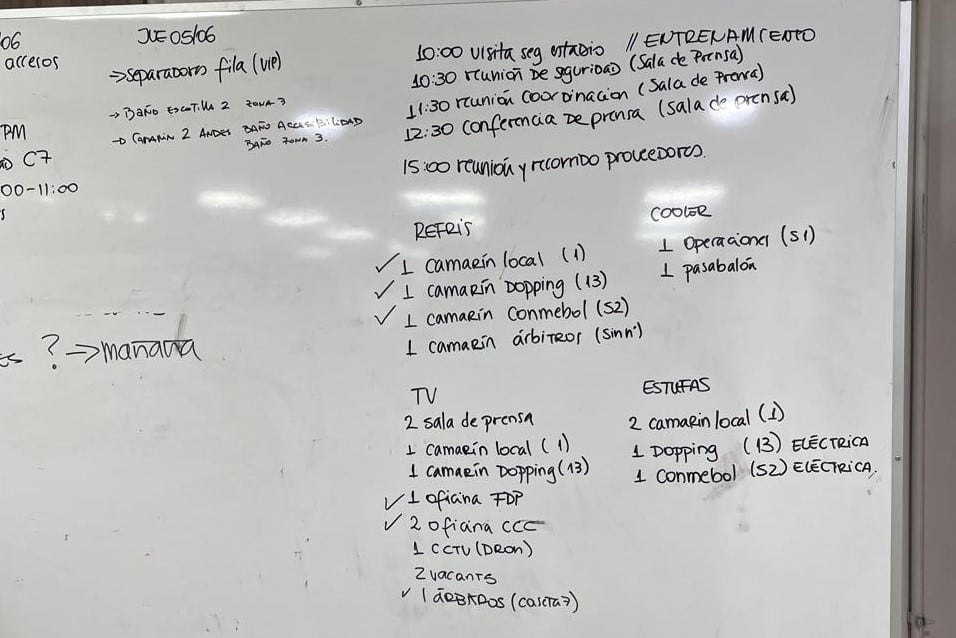 06
acceros
PM
C7
00-11:00
s
es ? → mañana
JUE 05/06
→ separadores fila (VIP)
→ BAÑO ESCOTILLA 2 ZONA 3
→ CAMARIN 2 ANDES BAÑO ACCESIBILIDAD
BAÑO ZONA 3.
10:00 visita seg estadio // ENTRENAMIENTO
10:30 reunión de sguridad (Sala de Prensa)
11:30 reunión coordinacion (Sala de Prenra)
12:30 conferencia de prensa (sala de prensa)
15:00 reunión y recorrido proveedores.
REFRIS
✓ 1 camarín local (1)
✓ 1 camarín Dopping (13)
✓ 1 camarín Conmebol (S2)
1 camarín árbitros (sin n°)
COOLER
1 Operaciones (S1)
1 pasabalón
TV
2 sala de prensa
1 camarín local (1)
1 camarín Dopping (13)
✓ 1 oficina FDP
✓ 2 oficina CCC
1 CCTV (DRON)
2 vacants
✓ 1 (caseta 7)
ESTUFAS
2 camarin local (1)
1 Dopping (13) ELÉCTRICA
1 Conmebol (S2) ELÉCTRICA.